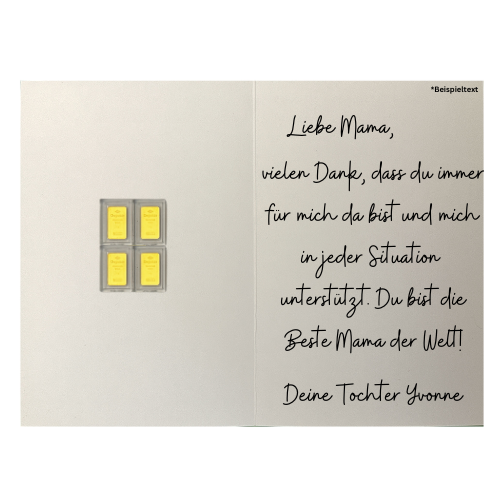 *Beispieltext
Liebe Mama,
vielen Dank, dass du immer
für mich da bist und mich
in jeder Situation
unterstützt. Du bist die
Beste Mama der Welt!
Deine Tochter Yvonne